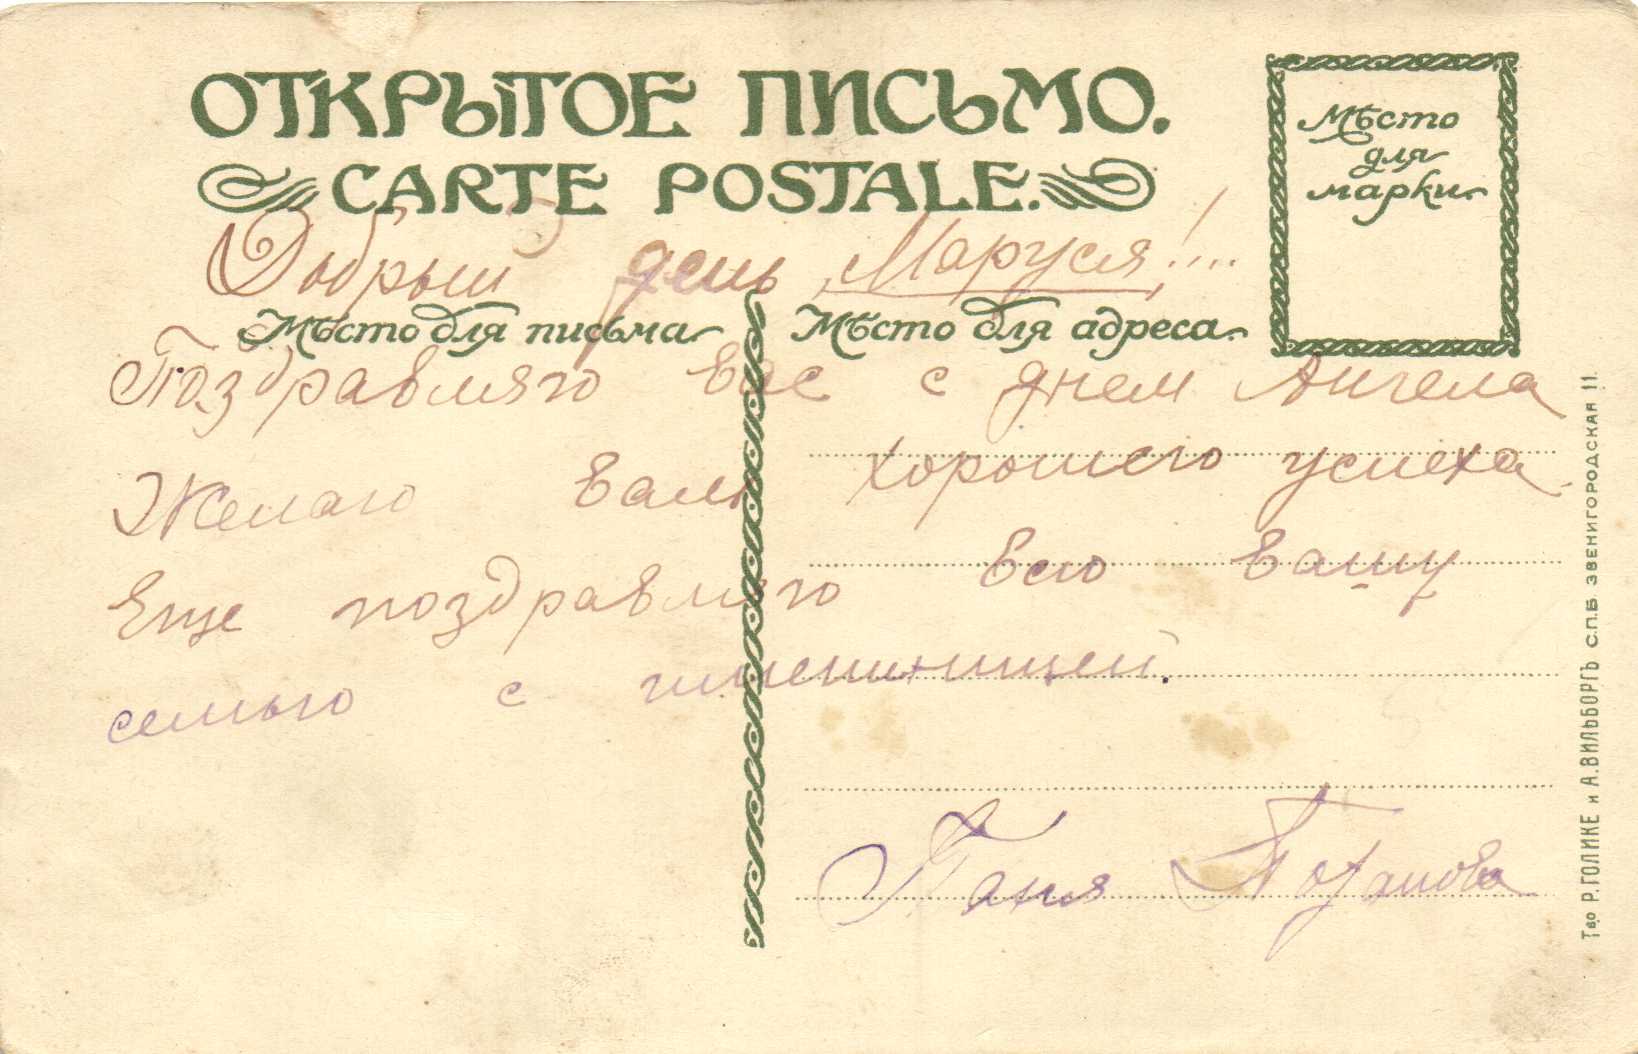 ОТКРЫТОЕ ПИСЬМО.
CARTE POSTALE.
Мѣсто
для
марки
Добрый день, Маруся!....
Мѣсто для письма
Мѣсто для адреса.
Поздравляю Вас с днем Ангела
Желаю Вам хорошего успеха.
Еще поздравляю всю вашу
семью с имениницей.
Таня
Т-во Р. ГОЛИКЕ и А. ВИЛЬБОРГЪ С.П.Б. ЗВЕНИГОРОДСКАЯ 11.